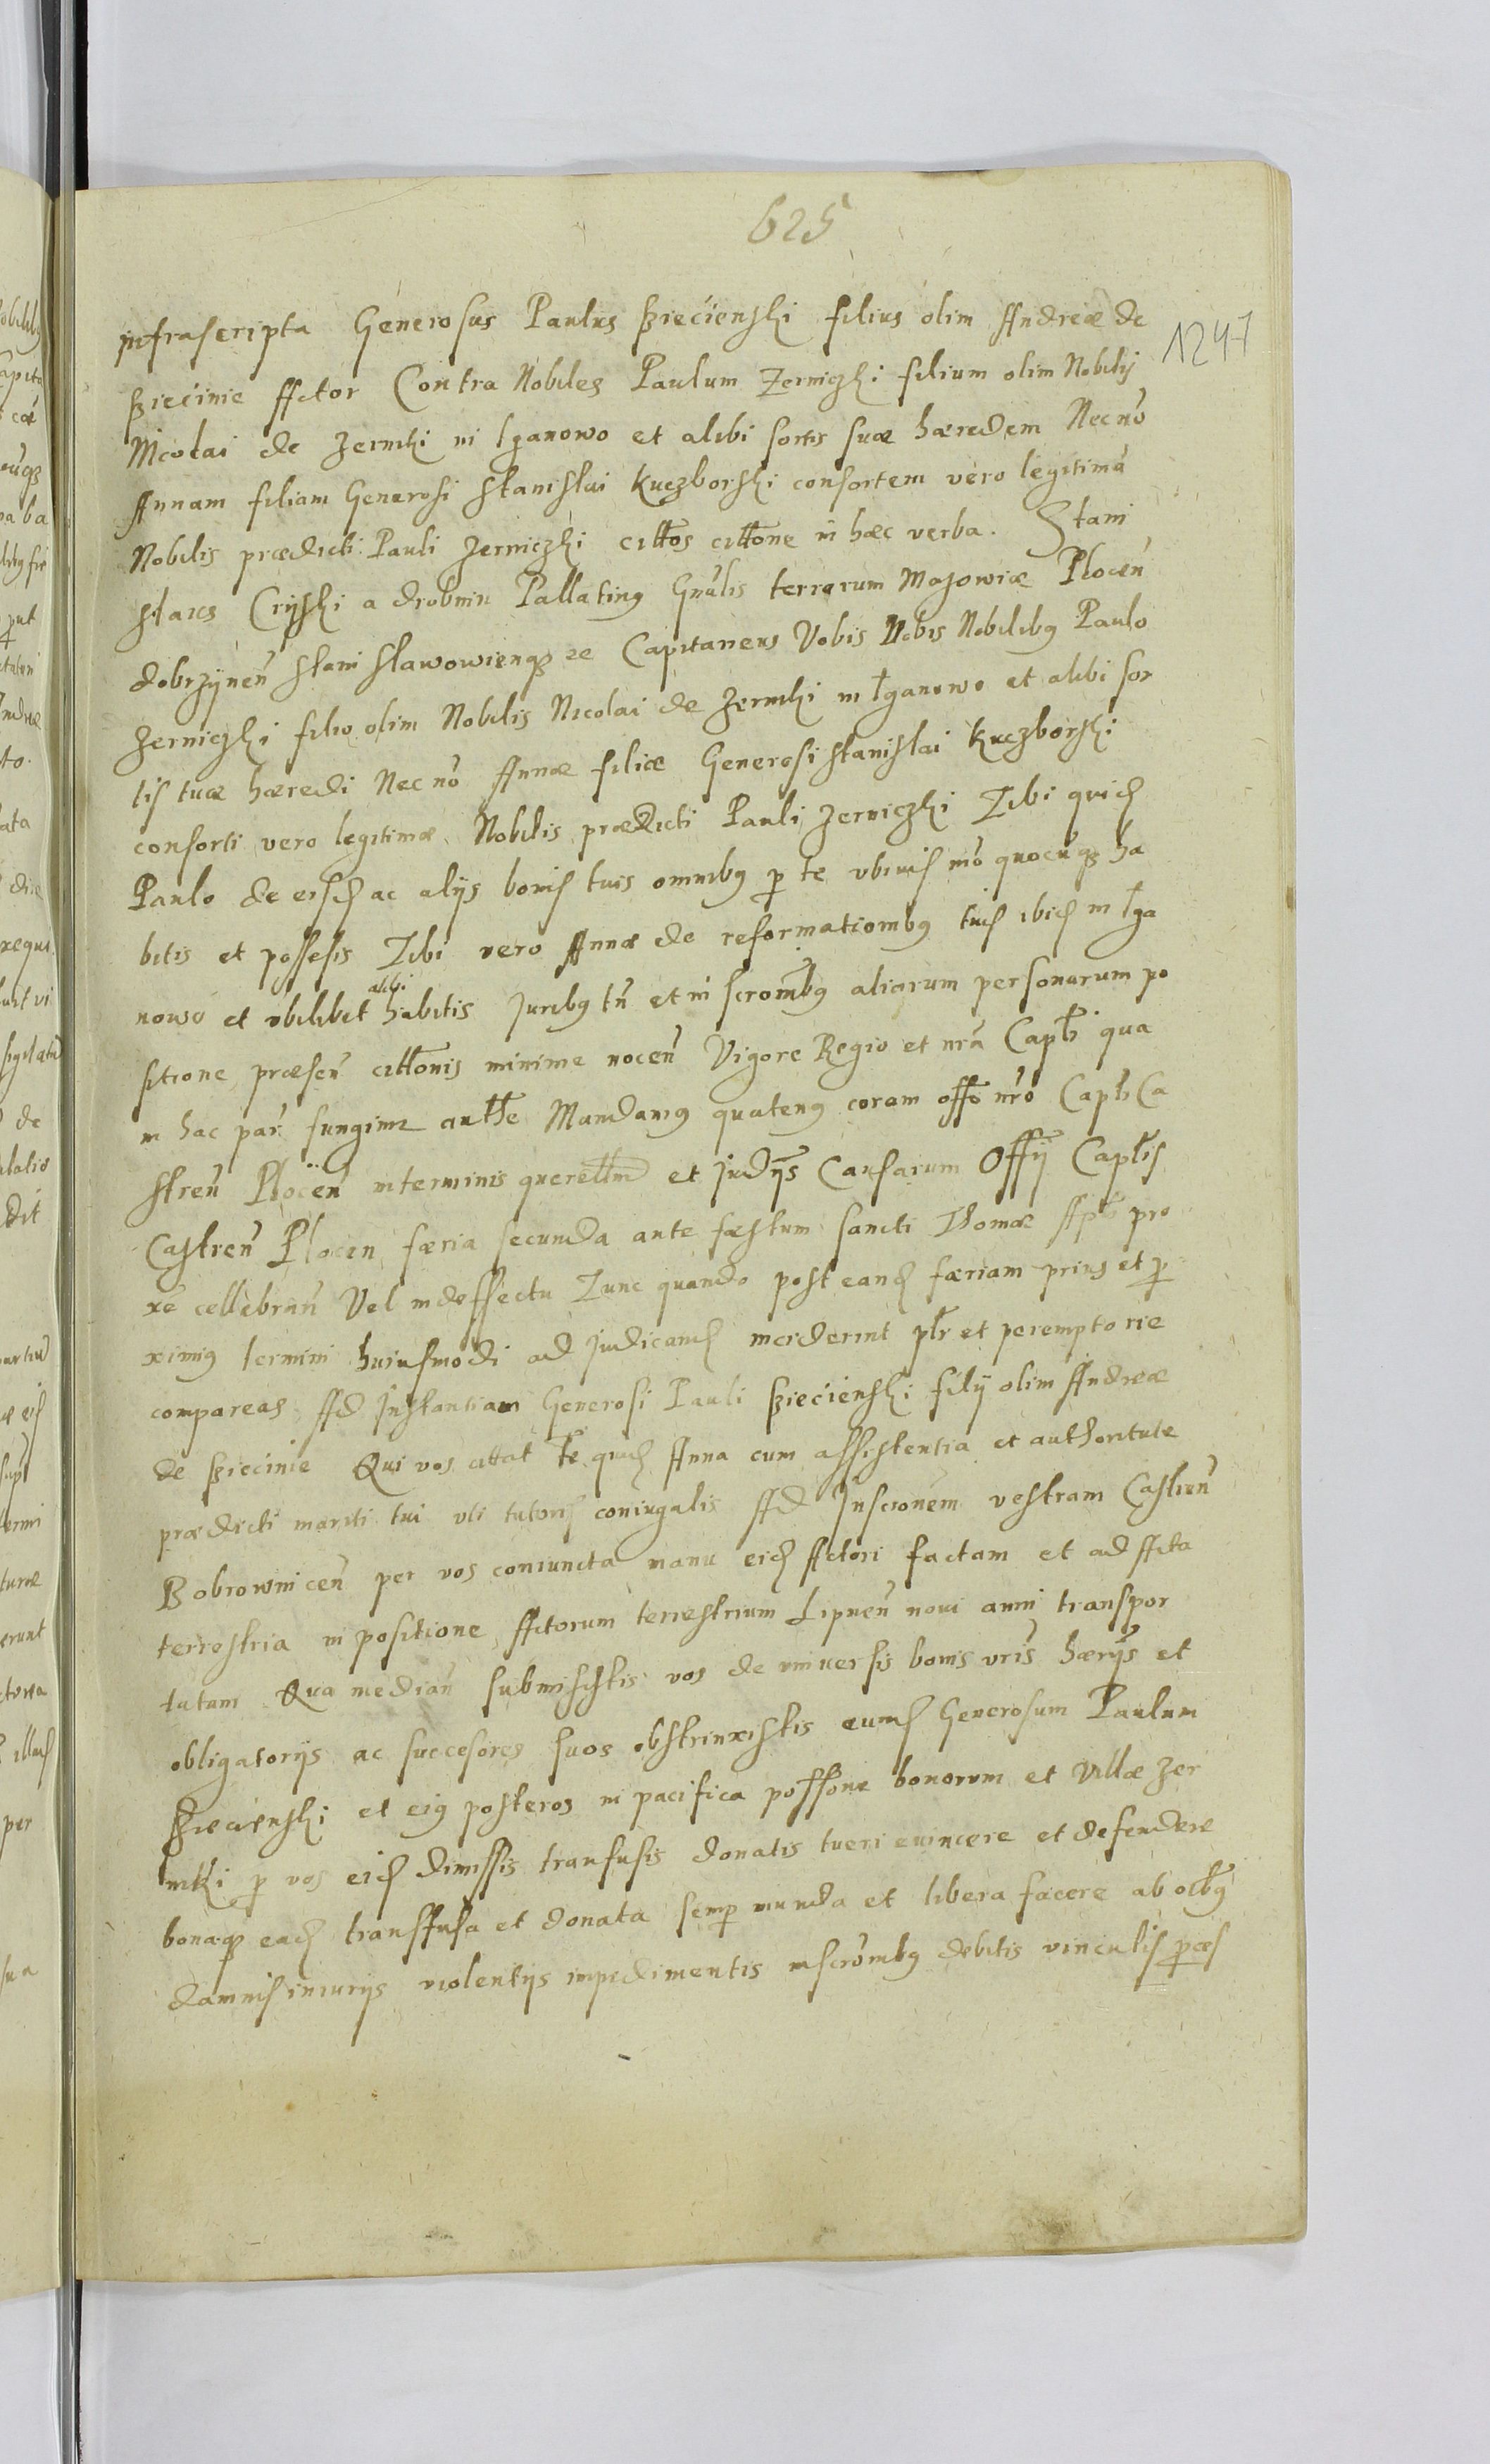 625
1247
infrascripta Generosus Paulus Brieciensky filius olim Andreæ de
Brieëinie Actor Contra Nobiles Paulum Zerniczki filium olim Nobilij
Nicolai de Zerniki in Lganowo et alibi sortis suæ hæredem Necnõ
Annam filiam Generosi Stanislai Kuczborski consortem vero legitimã
Nobilis prædicti Pauli Zerniczki cittos cittone in hæc verba. Stani
slaus Cryski a drobnin Pallatinus Gnãlis terrarum Masowiæ Plocen̄
dobrzynen̄ Stanislawowienqz ee Capitaneus Vobis Nobis Nobilibus Paulo
Zerniczki filio olim Nobilis Nicolai de Zerniki in Lganowo et alibi sor
tis tuæ hæredi Necnõ Annæ filiæ Generosi Stanislai Kuczborski
consorti vero legitimæ Nobilis prædicti Pauli Zerniczki Tibi quid
Paulo de eisd ac alijs bonis tuis omnibus p te ubivis mõ quocũqz ha
bitis et possesis Tibi vero Annæ de reformationibus tuis ibid in Lga
nowo et ubilibet alibi habitis Juribus tñ et in scrõnibus aliarum personarum po
sitione præsen̄ cittonis minime nocen̄ Vigore Regio et nrã Captł qua
in hac par̄ fungimr autthe Mandamus quatenus coram offõ nrõ Captł Ca
stren̄ Plocen̄ in terminis querellm̄ et Judijs Causarum Offij Captlis
Castren̄ Plocen færia secunda ante fæstum sancti Thomæ Aptł pro
xẽ cellebran̄ Vel in deffectu Tunc quando post eand færiam prius et p
ximius termini huiusmodi ad judicand inciderint ptr et peremptorie
compareas Ad Instantiam Generosi Pauli Brieciensky filij olim Andreæ
de Brieëinie Qui vos cittat te quid Anna cum assistentia et authoritate
prædicti mariti tui uti tutoris coniugalis Ad Inscrõnem vestram Castren̄
Bobrownicen̄ per vos coniuncta manu eid Actori factam et ad Acta
terrestria in positione Actorum terrestrium Lipnen̄ novi anni transpor
tatam Qua median̄ submisistis vos de universis bonis vris̄ hærijs et
obligatorijs ac succesores suos obstrinxistis eund Generosum Paulum
Brieciensky et eius posteros in pacifica possõne bonorum et Villæ Zer
niki p vos eid dimissis transfusis donatis tueri evincere et defendere
bonaqz ead transfusa et donata semp munda et libera facere ab oībus
damnis iniurijs violentijs impedimentis inscrõnibus debitis vinculis pces